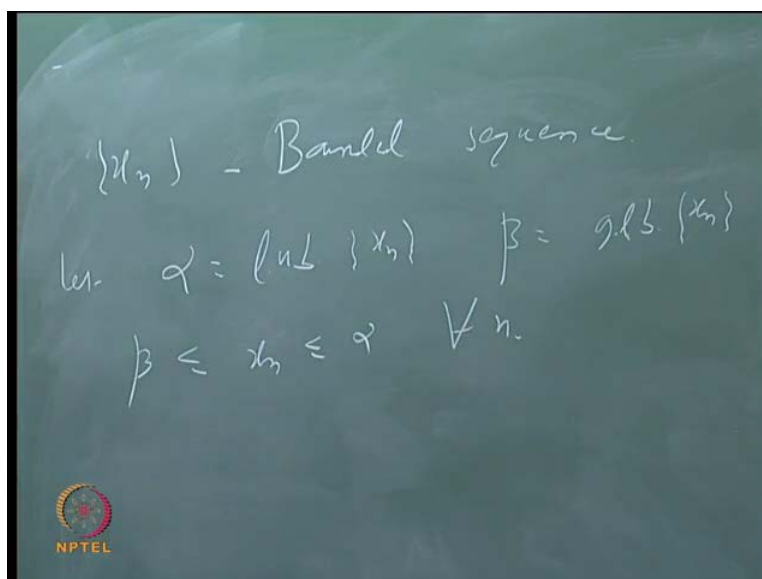 {xₙ} - Bounded sequence.
Let α = l.u.b {xₙ} β = g.l.b. {xₙ}
β ≤ xₙ ≤ α ∀ n.
NPTEL